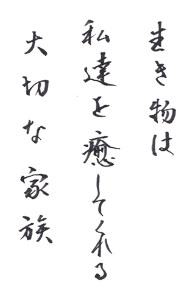 生き物は
私達を癒してくれる
大切な家族